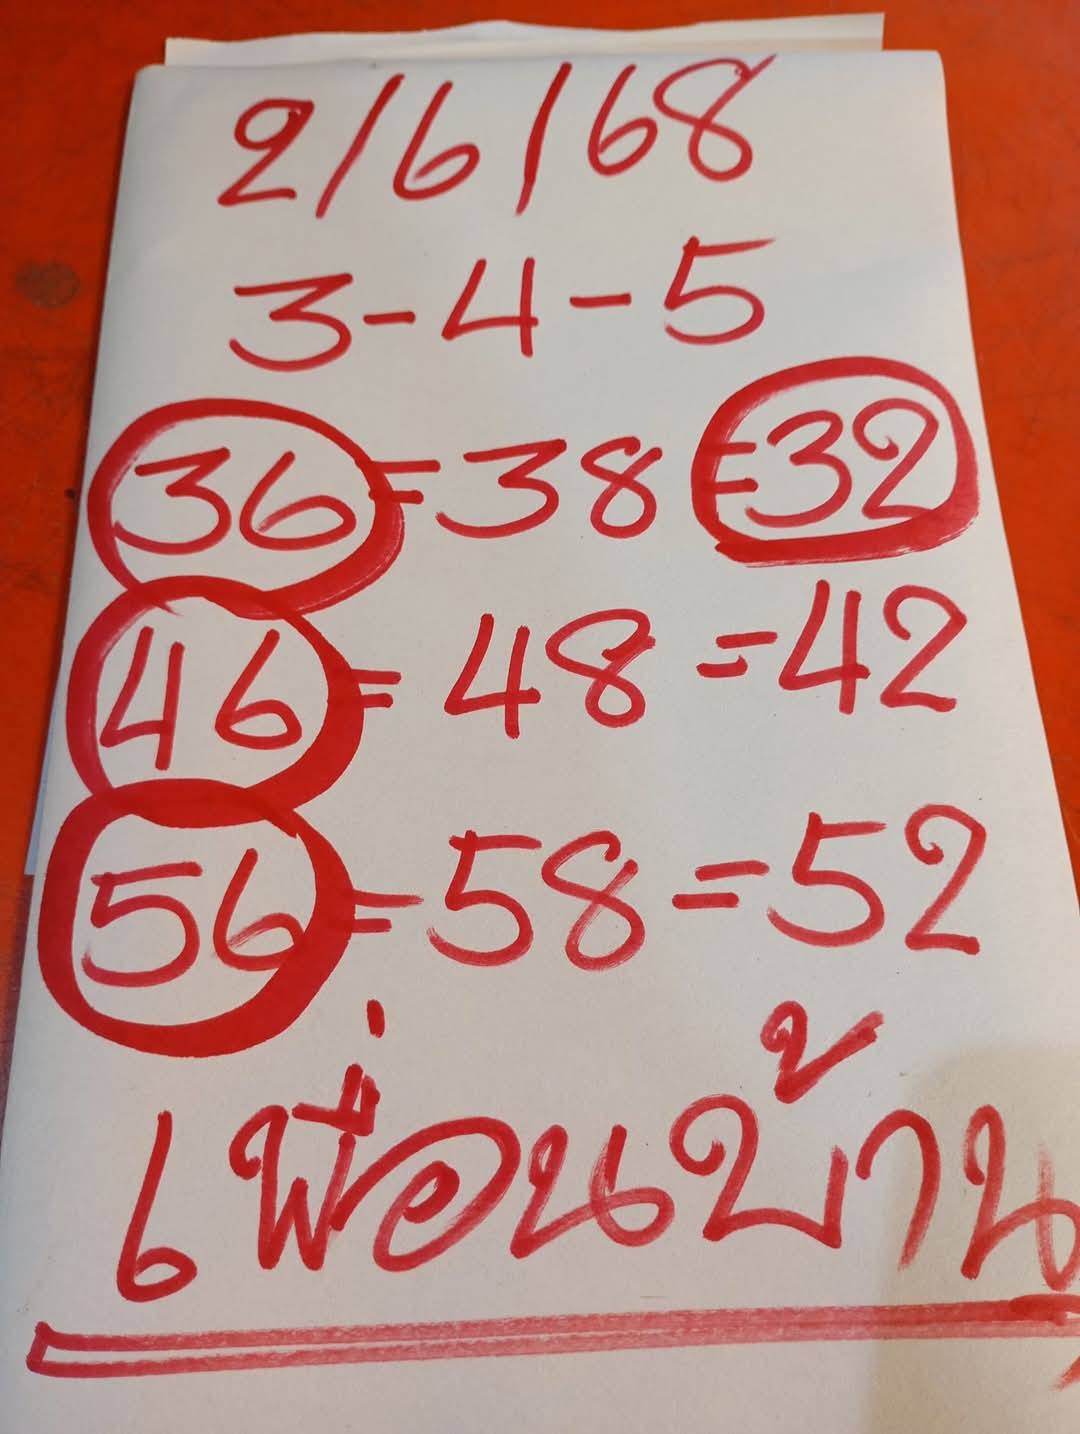 2/6/68
3-4-5
36=38=32
46=48=42
56=58=52
เพื่อนบ้าน